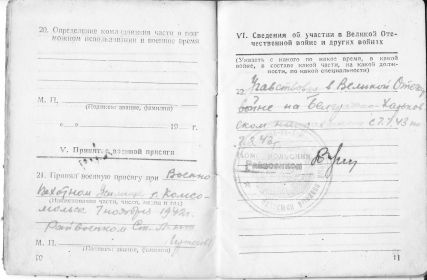 20. Определение командования части о воз-
можном использовании в военное время
М. П.
(Подпись, звание, фамилия)
" " 19 г.
V. Принятие военной присяги
21. Принял военную присягу при Военно
Пехотном г. Комсо-
(Наименование части, число, месяц и год)
мольск 7 ноября 1942г.
Райвоенком Ст. л-нт
М. П.
(Подпись, звание, фамилия)
10
VI. Сведения об участии в Великой Оте-
чественной войне и других войнах
(Указать с какого по какое время, в какой
войне, в составе какой части, на какой долж-
ности, по какой специальности)
22 Участвовал в Великой Отеч.
войне на Белгородско-Харьков
ском направлении с 7.43 по
43г.
Райвоенком
11